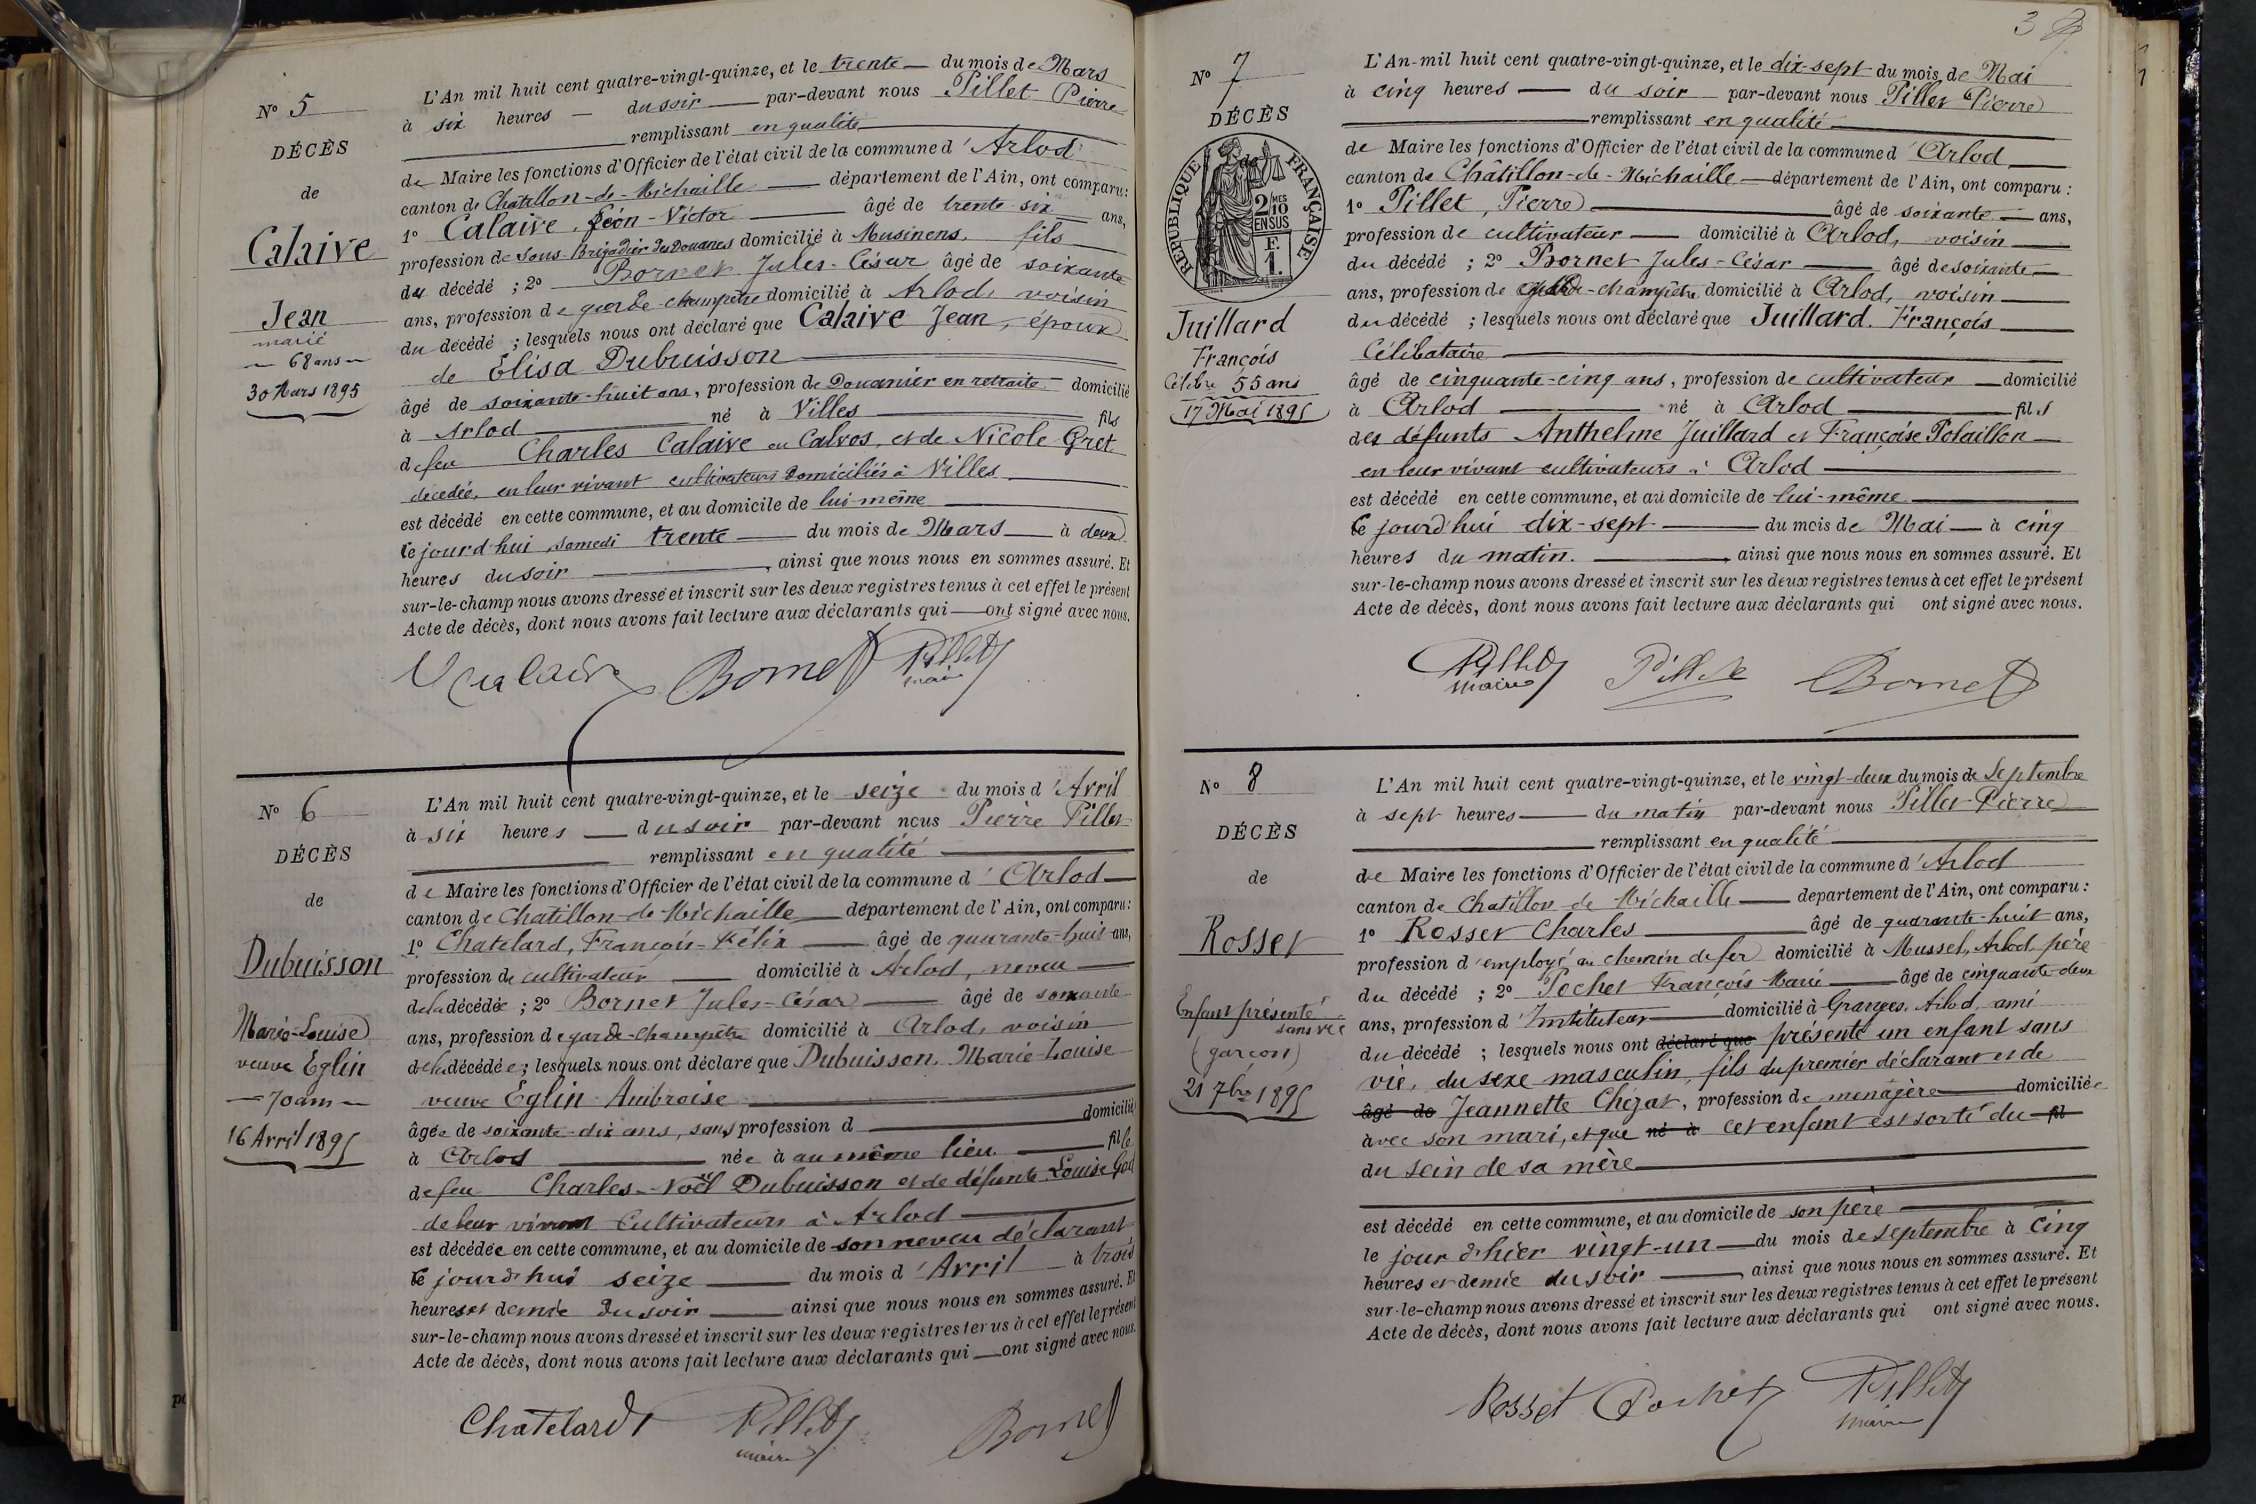 Nº 5
DÉCÈS
de
Calaive
Jean
marié
68 ans
30 Mars 1895
L'An mil huit cent quatre-vingt-quinze, et le trente du mois de Mars
à six heures du soir par-devant nous Pillet Pierre
remplissant en qualité
de Maire les fonctions d'Officier de l'état civil de la commune d'Arlod
canton de Chatillon-de-Michaille département de l'Ain, ont comparu :
1º Calaive, Léon-Victor âgé de trente six ans,
profession de Sous-Brigadier des Douanes domicilié à Musinens, fils
du décédé ; 2º Bornet Jules-César âgé de soixante
ans, profession de garde-champêtre domicilié à Arlod, voisin
du décédé ; lesquels nous ont déclaré que Calaive Jean, époux
de Elisa Dubuisson
âgé de soixante-huit ans, profession de Douanier en retraite domicilié
à Arlod né à Villes fils
de feu Charles Calaive ou Calvos, et de Nicole Gret
décédée, en leur vivant cultivateurs domiciliés à Villes
est décédé en cette commune, et au domicile de lui-même
ce jourd'hui samedi trente du mois de Mars à deux
heures du soir, ainsi que nous nous en sommes assuré. Et
sur-le-champ nous avons dressé et inscrit sur les deux registres tenus à cet effet le présent
Acte de décès, dont nous avons fait lecture aux déclarants qui ont signé avec nous.
Bornet Pillet
maire
Nº 6
DÉCÈS
de
Dubuisson
Marie-Louise
veuve Eglin
70 ans
16 Avril 1895
L'An mil huit cent quatre-vingt-quinze, et le seize du mois d'Avril
à six heures du soir par-devant nous Pierre Pillet
remplissant en qualité
de Maire les fonctions d'Officier de l'état civil de la commune d'Arlod
canton de Chatillon-de-Michaille département de l'Ain, ont comparu :
1º Chatelard, François-Félix âgé de quarante-huit ans,
profession de cultivateur domicilié à Arlod, neveu
de la décédée ; 2º Bornet Jules-César âgé de soixante
ans, profession de garde-champêtre domicilié à Arlod, voisin
de la décédée ; lesquels nous ont déclaré que Dubuisson, Marie-Louise
veuve Eglin Ambroise
âgée de soixante-dix ans, sans profession d domicilié
à Arlod née à au même lieu fille
de feu Charles-Noël Dubuisson et de défunte Louise God
de leur vivant Cultivateurs à Arlod
est décédée en cette commune, et au domicile de son neveu déclarant
ce jourd'hui seize du mois d'Avril à trois
heures et demie du soir ainsi que nous nous en sommes assuré. Et
sur-le-champ nous avons dressé et inscrit sur les deux registres tenus à cet effet le présent
Acte de décès, dont nous avons fait lecture aux déclarants qui ont signé avec nous.
Chatelard Pillet Bornet
maire
3
Nº 7
DÉCÈS
de
RÉPUBLIQUE FRANÇAISE
2 MES
10
EN SUS
F.
1.
Juillard
François
Célibre 55 ans
17 Mai 1895
L'An mil huit cent quatre-vingt-quinze, et le dix-sept du mois de Mai
à cinq heures du soir par-devant nous Pillet Pierre
remplissant en qualité
de Maire les fonctions d'Officier de l'état civil de la commune d'Arlod
canton de Châtillon-de-Michaille département de l'Ain, ont comparu :
1º Pillet, Pierre âgé de soixante ans,
profession de cultivateur domicilié à Arlod, voisin
du décédé ; 2º Bornet Jules-César âgé de soixante
ans, profession de garde-champêtre domicilié à Arlod, voisin
du décédé ; lesquels nous ont déclaré que Juillard, François
Célibataire
âgé de cinquante-cinq ans, profession de cultivateur domicilié
à Arlod né à Arlod fils
des défunts Anthelme Juillard et Françoise Polaillon
en leur vivant cultivateurs à Arlod
est décédé en cette commune, et au domicile de lui-même
ce jourd'hui dix-sept du mois de Mai à cinq
heures du matin. , ainsi que nous nous en sommes assuré. Et
sur-le-champ nous avons dressé et inscrit sur les deux registres tenus à cet effet le présent
Acte de décès, dont nous avons fait lecture aux déclarants qui ont signé avec nous.
Pillet Pillet Bornet
maire
Nº 8
DÉCÈS
de
Rosset
Enfant présenté
sans vie
(garçon)
21 7bre 1895
L'An mil huit cent quatre-vingt-quinze, et le vingt-deux du mois de Septembre
à sept heures du matin par-devant nous Pillet Pierre
remplissant en qualité
de Maire les fonctions d'Officier de l'état civil de la commune d'Arlod
canton de Chatillon de Michaille département de l'Ain, ont comparu :
1º Rosset Charles âgé de quarante-huit ans,
profession d'employé au chemin de fer domicilié à Mussel, Arlod, père
du décédé ; 2º Pochet François-Marie âgé de cinquante-deux
ans, profession d'Instituteur domicilié à Granges, Arlod, ami
du décédé ; lesquels nous ont déclaré que présenté un enfant sans
vie, du sexe masculin, fils du premier déclarant et de
âgé de Jeannette Chézat, profession de ménagère domiciliée
avec son mari, et que né à cet enfant est sorti du fil
du sein de sa mère
est décédé en cette commune, et au domicile de son père
le jour d'hier vingt-un du mois de septembre à cinq
heures et demie du soir, ainsi que nous nous en sommes assuré. Et
sur-le-champ nous avons dressé et inscrit sur les deux registres tenus à cet effet le présent
Acte de décès, dont nous avons fait lecture aux déclarants qui ont signé avec nous.
Rosset Pochet Pillet
maire